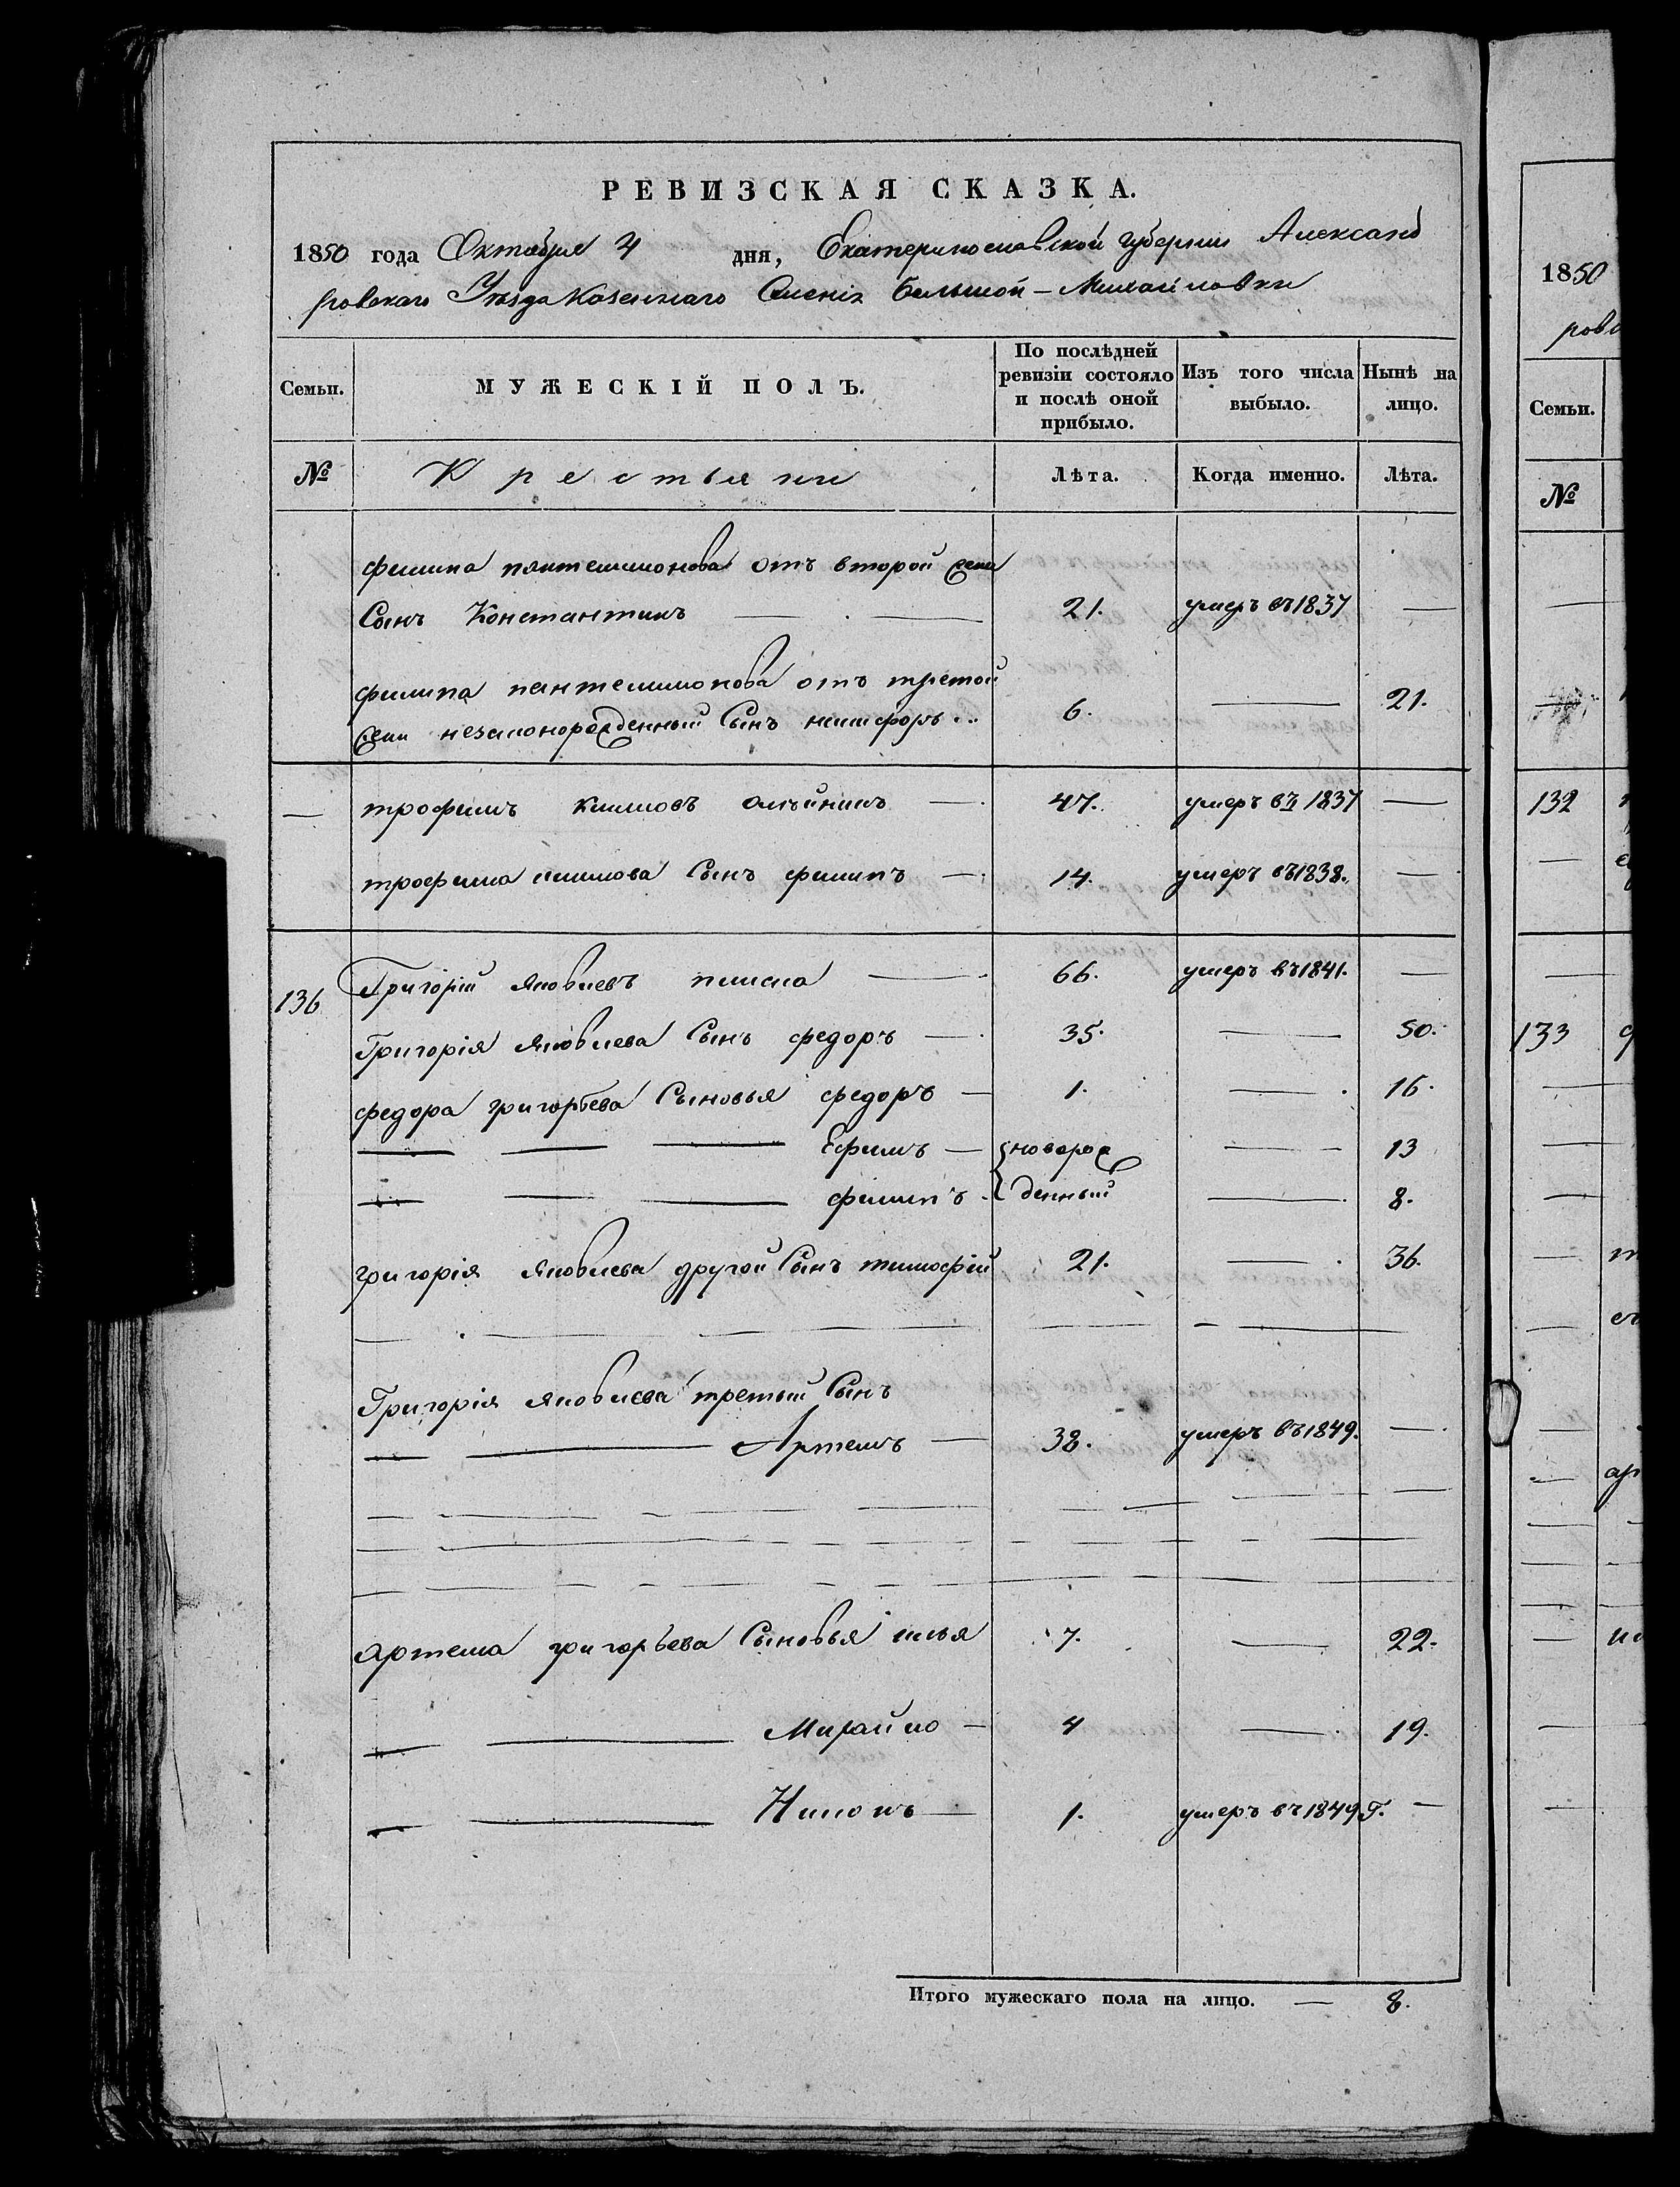 РЕВИЗСКАЯ СКАЗКА.
1850 года Октября 4 дня, Екатеринославской губернии Александ
ровскаго Уезда Казеннаго Селенія Большой-Михайловки
Семьи. МУЖЕСКІЙ ПОЛЪ. По послѣдней ревизіи состояло и послѣ оной прибыло. Изъ того числа выбыло. Нынѣ на лицо.
№ Крестьяни Лѣта. Когда именно. Лѣта.
филипа пантелимонова отъ второй
Сынъ Константинъ — 21. умеръ въ 1837 —
филипа пантелимонова отъ третой
незаконорожденный Сынъ никифоръ 6. — 21.
— трофимъ климовъ олейникъ — 47. умеръ въ 1837 —
трофима климова Сынъ филипъ — 14. умеръ въ 1838. —
136 Григорій яковлевъ — 66. умеръ въ 1841. —
Григорія яковлева Сынъ федоръ — 35. — 50.
федора григорьева Сыновья федоръ — 1. — 16.
— — — Ефимъ — новорож — 13
— — — филипъ денный — 8.
григорія яковлева другой Сынъ тимофій 21. — 36.
Григорія яковлева третьий Сынъ
— — Артемъ — 38. умеръ въ 1849. —
Артема григорьева Сыновья илья 7. — 22.
— — Михайло — 4 — 19.
— — Никонъ — 1. умеръ въ 1849 г. —
Итого мужескаго пола на лицо. — 8.
1850
рово
Семьи.
№
132
133